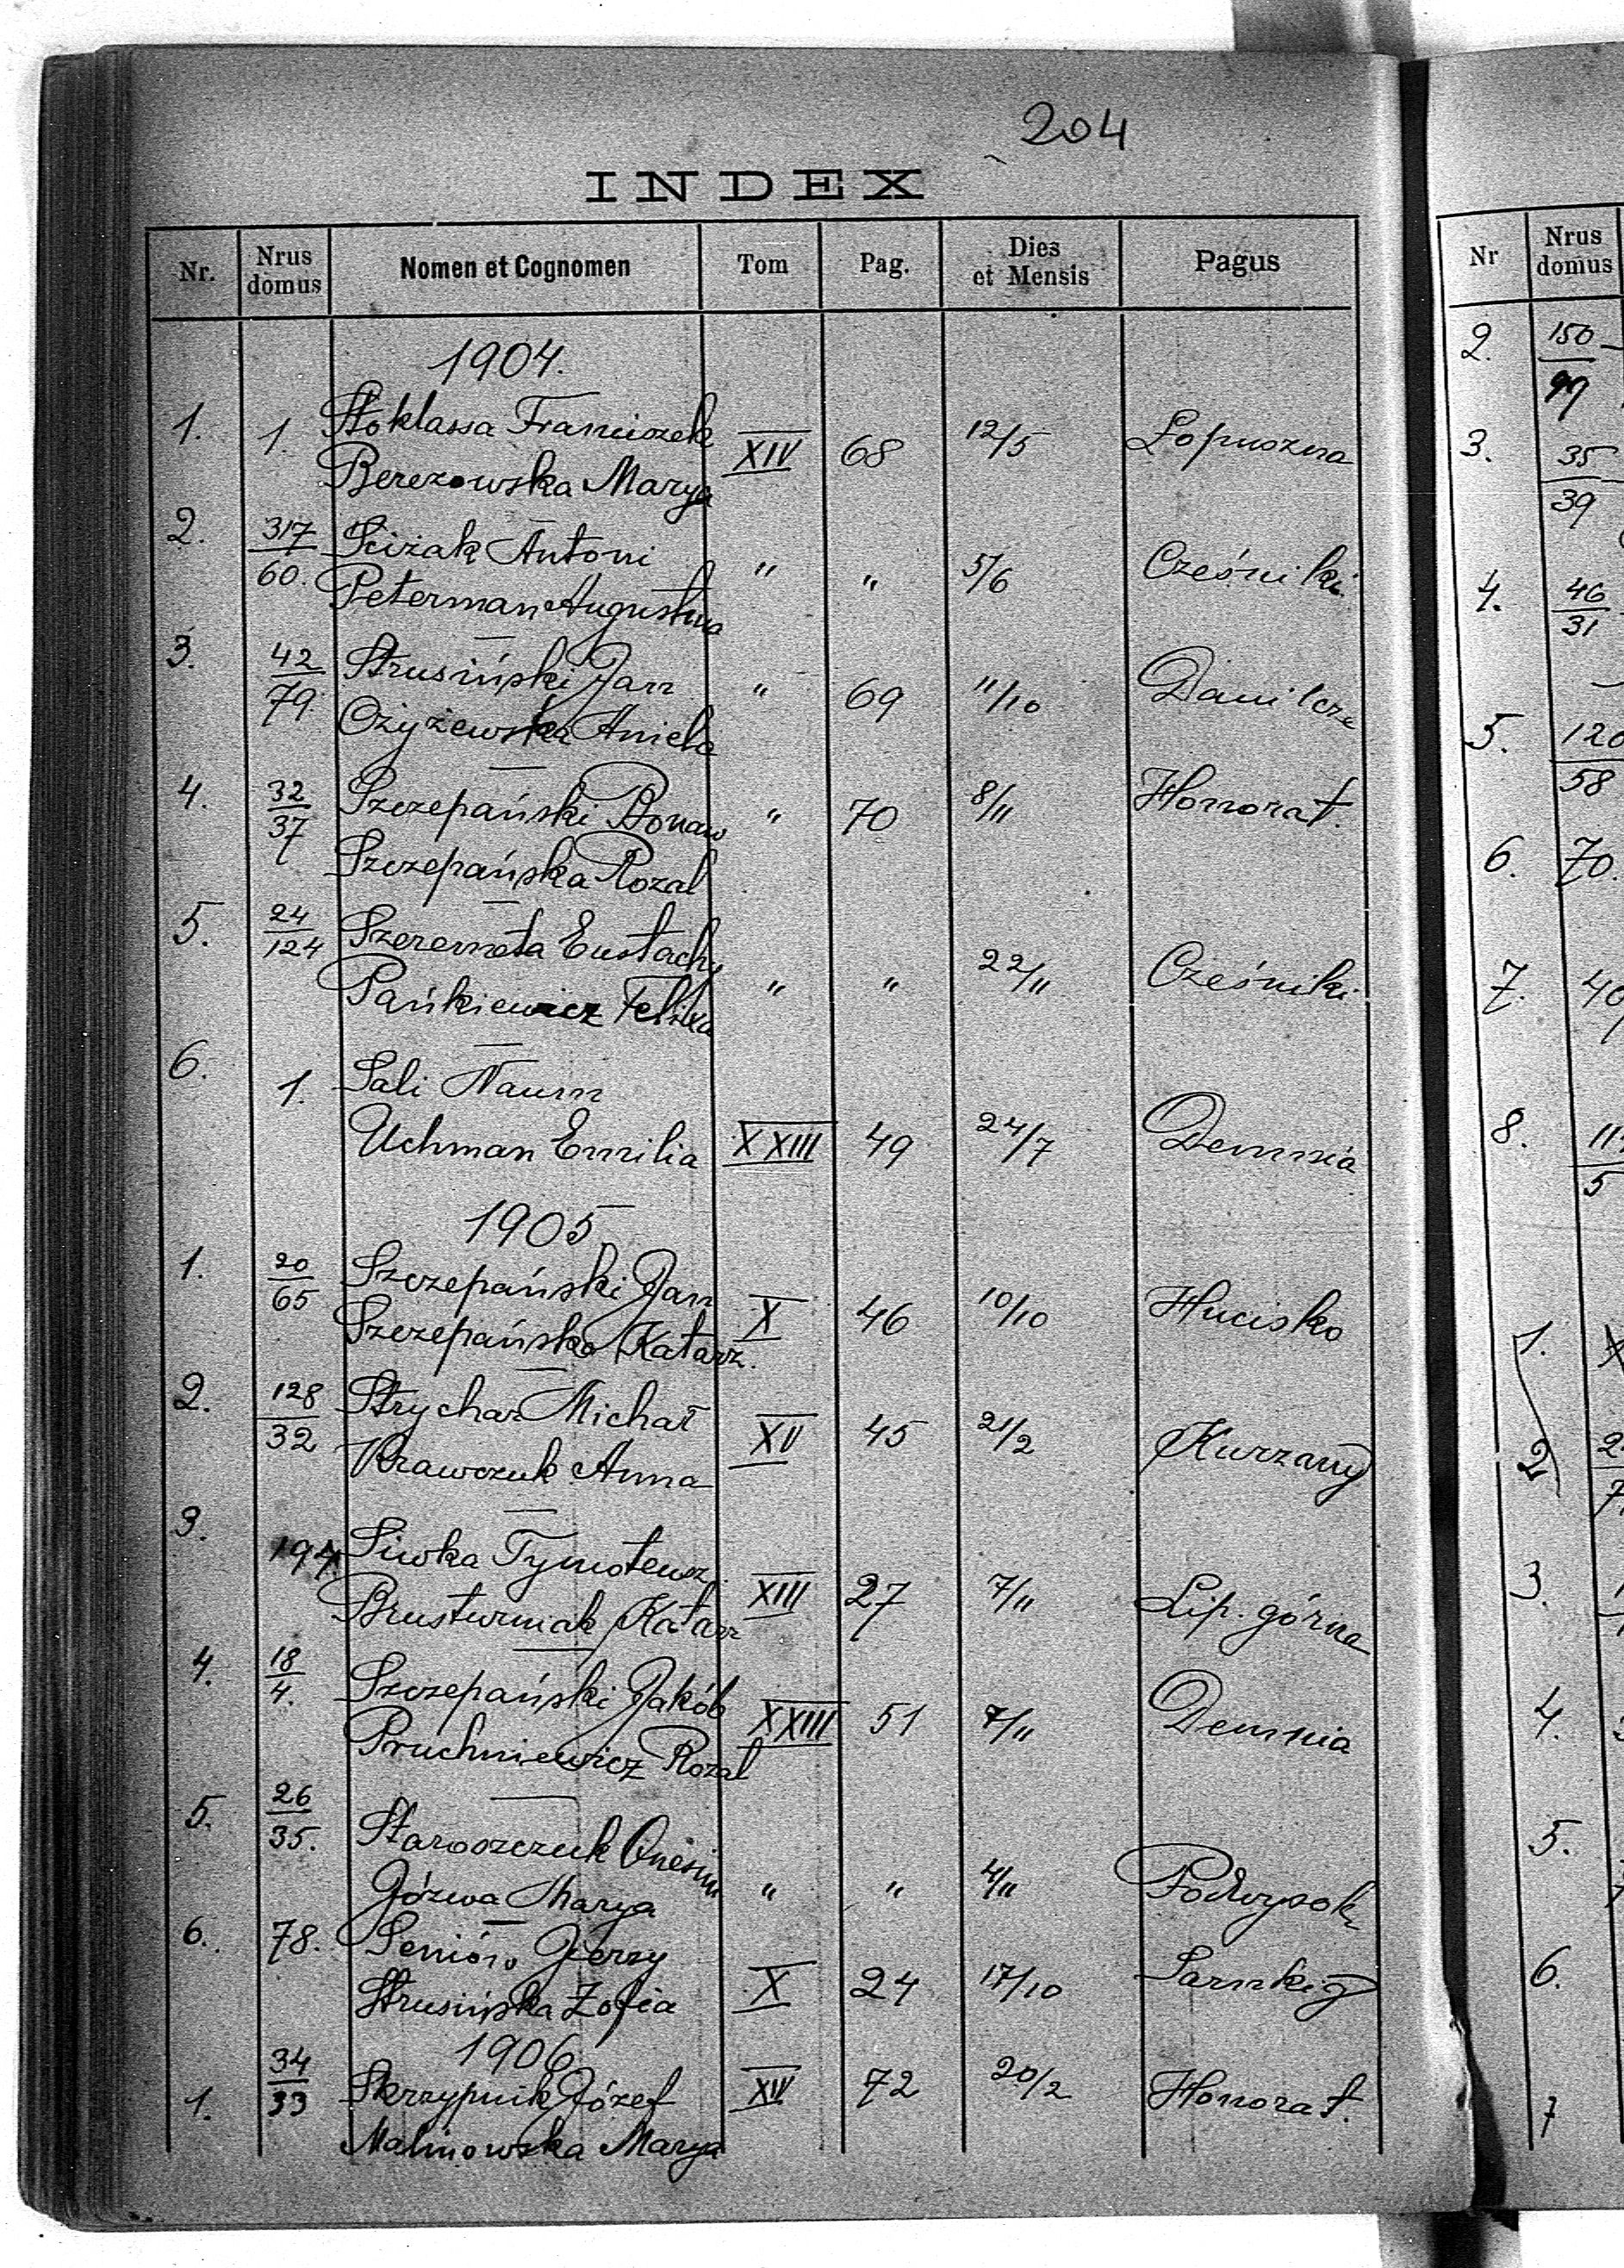 204
INDEX
Nr. Nrus domus Nomen et Cognomen Tom Pag. Dies et Mensis Pagus
1904.
1. 1. Stoklassa Franciszek XIV 68 12/5 Lopuszna
Berezowska Marya
2. 317/60. Sciżak Antoni " " 5/6 Cześniki
Peterman Augustyna
3. 42/79. Strusiński Jan " 69 11/10 Danilcze
Ożyżewska Aniela
4. 32/37 Szczepański Bonaw " 70 8/11 Honorat.
Szczepańska Rozal
5. 24/124 Szeremeta Eustachy " " 22/11 Cześniki
Pańkiewicz Felixa
6. 1. Sali Naum
Uchman Emilia XXIII 49 24/7 Demnia
1905
1. 20/65 Szczepański Jan X 46 10/10 Hucisko
Szczepańska Katarz.
2. 128/32 Strychar Michał XV 45 21/2 Kurzany
Krawczuk Anna
3. 194. Siwka Tymoteusz XIII 27 7/11 Lip. górna
Brusturniak Katarz
4. 18/4. Szczepański Jakób XXIII 51 7/11 Demnia
Pruchniewicz Rozal
5. 26/35. Staroszczuk Onesim " " 4/11 Podwysok
Gózwa Marya
6. 78. Seniów Jerzy X 24 17/10 Sarnki
Strusińska Zofia
1906
1. 34/33 Skrzypnik Józef XIV 72 20/2 Honorat.
Malinowska Marya
Nr Nrus domus
2. 150/99
3. 35/39
4. 46/31
5. 120/58
6. 70.
7. 40
8. 11
5
1.
2
3.
4.
5.
6.
7